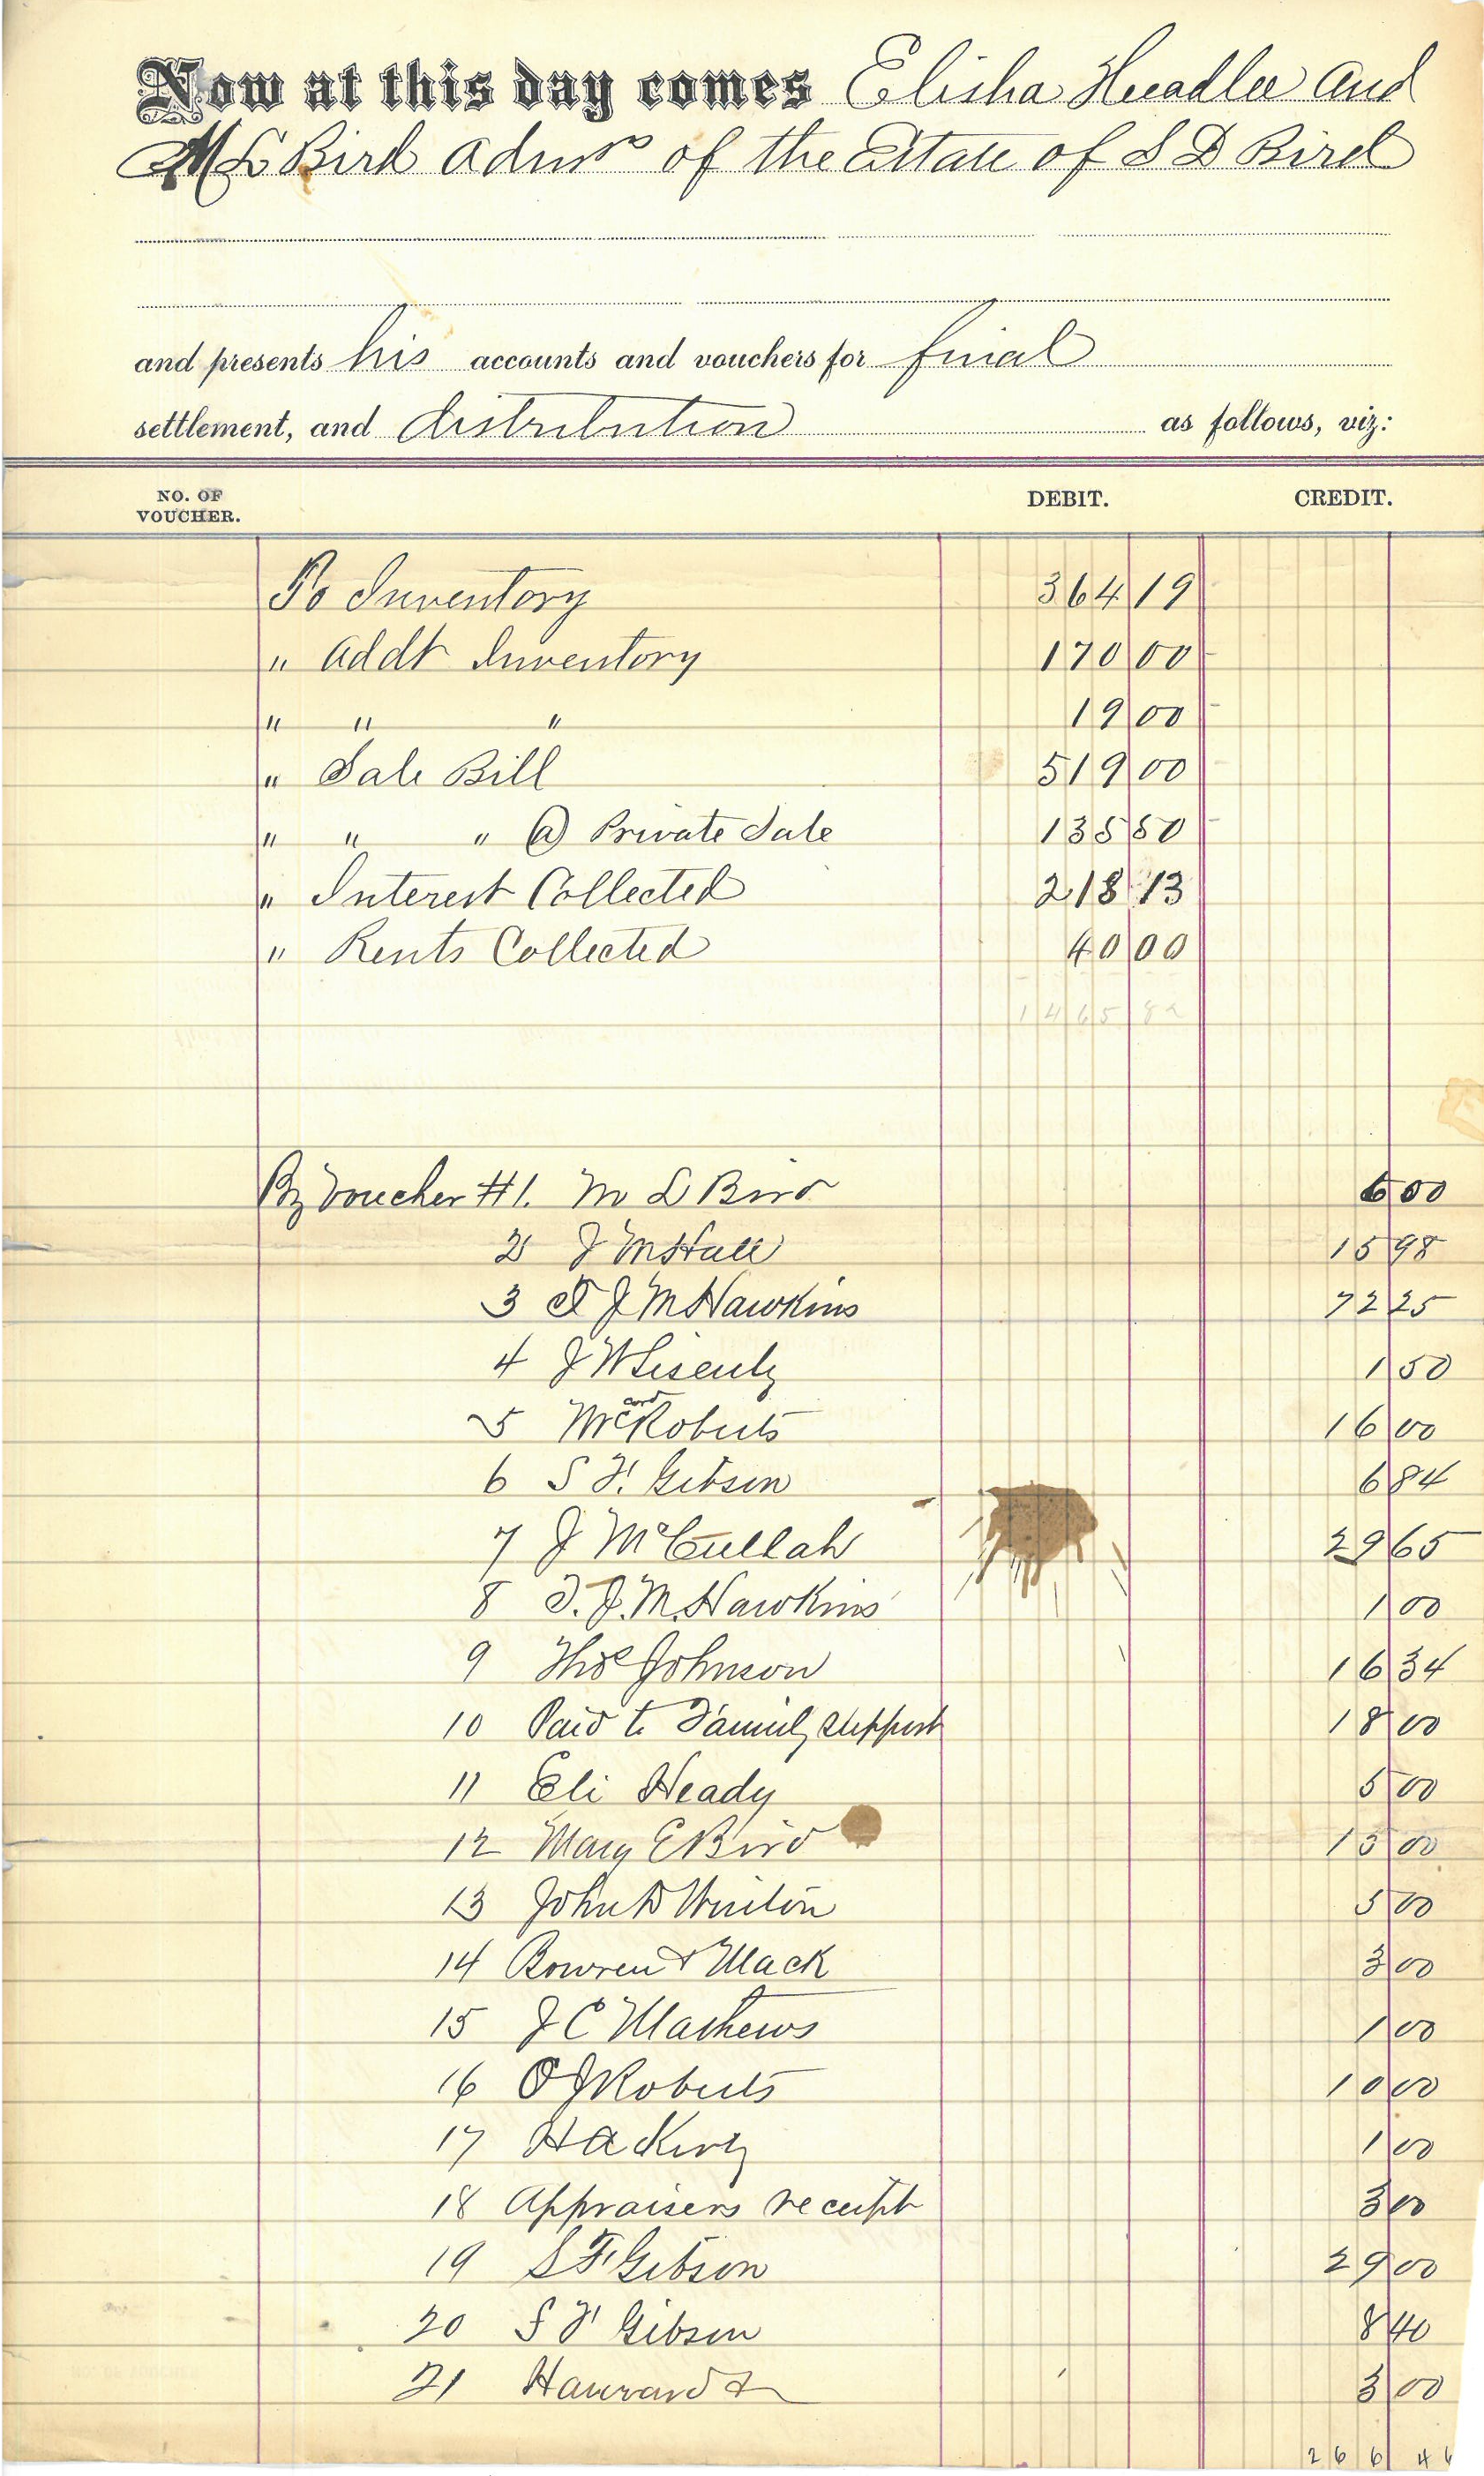 Now at this day comes Elisha Headlee and
M L Bird admrs of the Estate of S D Bird
and presents his accounts and vouchers for final
settlement, and distribution as follows, viz:
NO. OF VOUCHER. DEBIT. CREDIT.
To Inventory 364 19
" Addt Inventory 170 00
" " " 19 00
" Sale Bill 519 00
" " " @ Private Sale 135 50
" Interest Collected 218 13
" Rents Collected 40 00
1465 82
By Voucher #1. M L Bird 6 00
2 J M Hall 15 98
3 T J M Hawkins 72 25
4 J W Lisenby 1 50
5 McCord Roberts 16 00
6 S F. Gibson 6 84
7 J McCullah 29 65
8 T. J. M. Hawkins 1 00
9 Thos Johnson 16 34
10 Paid to Family support 18 00
11 Eli Heady 5 00
12 Mary E Bird 15 00
13 John D Winton 5 00
14 Bowren & Mack 3 00
15 J C Mathews 1 00
16 O J Roberts 10 00
17 H A 1 00
18 Appraisers receipt 3 00
19 S F Gibson 29 00
20 S F Gibson 8 40
21 3 00
266 46